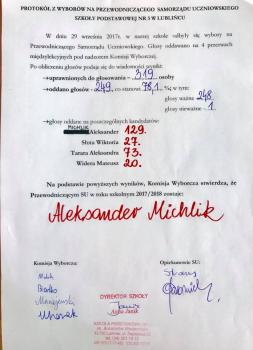 PROTOKÓŁ Z WYBORÓW NA PRZEWODNICZĄCEGO SAMORZĄDU UCZNIOWSKIEGO
SZKOŁY PODSTAWOWEJ NR 3 W LUBLIŃCU
W dniu 29 września 2017r. w naszej szkole odbyły się wybory na
Przewodniczącego Samorządu Uczniowskiego. Głosy oddawano na 4 przerwach
międzylekcyjnych pod nadzorem Komisji Wyborczej.
Po obliczeniu głosów podaje się do wiadomości wyniki:
uprawnionych do głosowania - 319 osoby
oddano głosów - 249, co stanowi 78,1 %; w tym:
głosy ważne 248
głosy nieważne 1
głosy oddane na poszczególnych kandydatów:
MICHLIK Aleksander 129.
Słota Wiktoria 27.
Tanara Aleksandra 73.
Widera Mateusz 20.
Na podstawie powyższych wyników, Komisja Wyborcza stwierdza, że
Przewodniczącym SU w roku szkolnym 2017/2018 zostaje:
Aleksander Michlik
Komisja Wyborcza:
Opiekunowie SU:
DYREKTOR SZKOŁY
Anna Janik